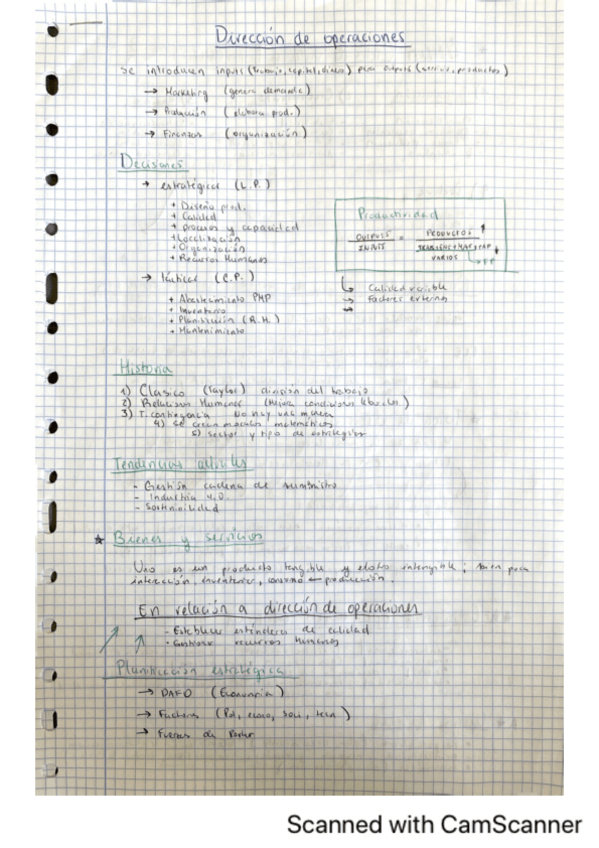 Dirección de operaciones
Se introducen inputs (trabajo, capital, dinero) para outputs (servicios, productos)
→ Marketing (genera demanda)
→ Producción (elabora prod.)
→ Finanzas (organización)
Decisiones
→ estratégicas (L.P.)
+ Diseño prod.
+ Calidad
+ procesos y capacidad
+ Localización
+ Organización
+ Recursos Humanos
→ tácticas (C.P.)
+ Abastecimiento PMP
+ Inventario
+ Planificación (R.H.)
+ Mantenimiento
Productividad
OUTPUTS / INPUT = PRODUCTOS ↑ / VARIOS
Calidad variable
→ Factores externos
→
Historia
1) Clásico (Taylor) división del trabajo
2) Relaciones Humanas (Mejora condiciones laborales)
3) T. contingencia No hay una manera
4) Se crean modelos matemáticos
5) Sector y tipo de estrategias
Tendencias actuales
- Gestión cadena de suministro
- Industria 4.0.
- Sostenibilidad
★ Bienes y servicios
Uno es un producto tangible y el otro intangible; tienen poca
interacción, inventario, consumo ← producción.
En relación a dirección de operaciones
- Establecer estándares de calidad
- Gestionar recursos humanos
Planificación estratégica
→ DAFO (Economía)
→ Factores (Pol, econo, soci, tecn)
→ Fuerzas de Porter
Scanned with CamScanner